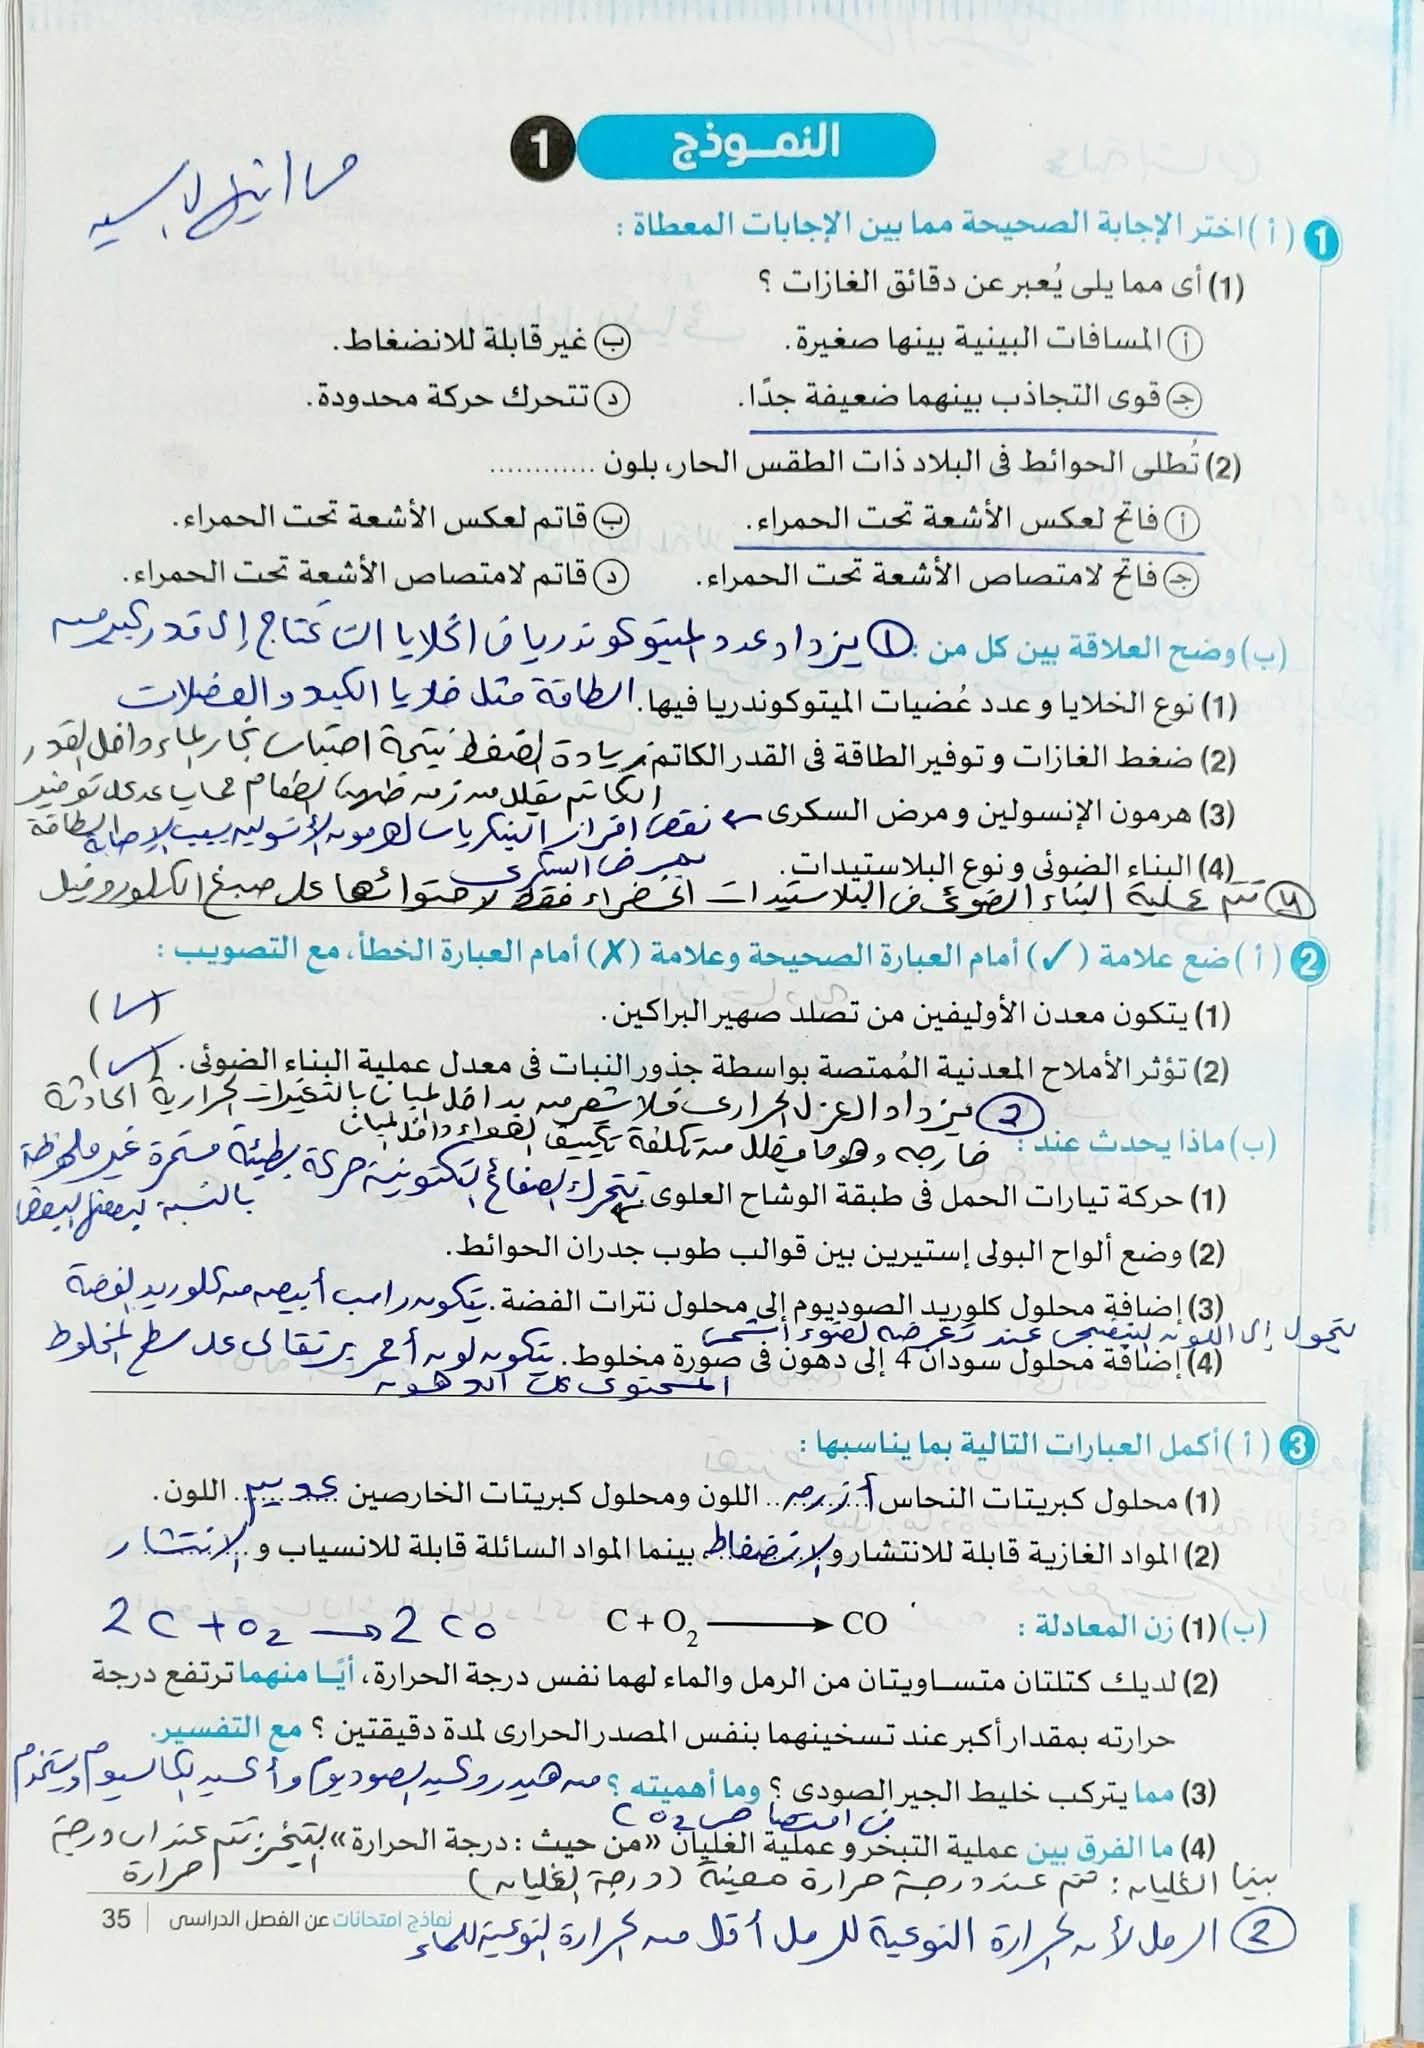 النموذج 1
1 (أ) اختر الإجابة الصحيحة مما بين الإجابات المعطاة :
(1) أى مما يلى يُعبر عن دقائق الغازات ؟
أ المسافات البينية بينها صغيرة. ب غير قابلة للانضغاط.
ج قوى التجاذب بينهما ضعيفة جدًا. د تتحرك حركة محدودة.
(2) تُطلى الحوائط فى البلاد ذات الطقس الحار، بلون ............
أ فاتح لعكس الأشعة تحت الحمراء. ب قاتم لعكس الأشعة تحت الحمراء.
ج فاتح لامتصاص الأشعة تحت الحمراء. د قاتم لامتصاص الأشعة تحت الحمراء.
(ب) وضح العلاقة بين كل من : ① يزداد عدد الميتوكوندريا فى الخلايا التى تحتاج إلى قدر كبير من
(1) نوع الخلايا وعدد عُضيات الميتوكوندريا فيها. الطاقة مثل خلايا الكبد والعضلات
(2) ضغط الغازات وتوفير الطاقة فى القدر الكاتم. زيادة الضغط نتيجة احتباس بخار الماء داخل القدر
الكاتم يقلل من زمن طهى الطعام مما يساعد على توفير الطاقة
(3) هرمون الإنسولين ومرض السكرى ← نقص إفراز البنكرياس لهرمون الأنسولين يسبب الإصابة
بمرض السكرى
(4) البناء الضوئى ونوع البلاستيدات.
④ تتم عملية البناء الضوئى فى البلاستيدات الخضراء فقط لاحتوائها على صبغ الكلوروفيل
2 (أ) ضع علامة (✓) أمام العبارة الصحيحة وعلامة (✗) أمام العبارة الخطأ، مع التصويب :
(1) يتكون معدن الأوليفين من تصلد صهير البراكين. (✓)
(2) تؤثر الأملاح المعدنية المُمتصة بواسطة جذور النبات فى معدل عملية البناء الضوئى. (✓)
② يزداد العزل الحرارى فلا يشعر من بداخل المبانى بالتغيرات الحرارية الحادثة
(ب) ماذا يحدث عند : خارجه وهو ما يقلل من تكلفة تكييف الهواء داخل المبانى
(1) حركة تيارات الحمل فى طبقة الوشاح العلوى. تتحرك الصفائح التكتونية حركة بطيئة مستمرة غير ملحوظة
بالنسبة لبعضها البعض
(2) وضع ألواح البولى إستيرين بين قوالب طوب جدران الحوائط.
(3) إضافة محلول كلوريد الصوديوم إلى محلول نترات الفضة. يتكون راسب أبيض من كلوريد الفضة
يتحول إلى اللون البنفسجى عند تعرضه لضوء الشمس
(4) إضافة محلول سودان 4 إلى دهون فى صورة مخلوط. يتكون لون أحمر برتقالى على سطح المخلوط
المحتوى على الدهون
3 (أ) أكمل العبارات التالية بما يناسبها :
(1) محلول كبريتات النحاس أزرق اللون ومحلول كبريتات الخارصين عديم اللون.
(2) المواد الغازية قابلة للانتشار و الانضغاط بينما المواد السائلة قابلة للانسياب و الانتشار
(ب) (1) زن المعادلة : C + O₂ ⟶ CO 2C + O₂ → 2CO
(2) لديك كتلتان متساويتان من الرمل والماء لهما نفس درجة الحرارة، أيًا منهما ترتفع درجة
حرارته بمقدار أكبر عند تسخينهما بنفس المصدر الحرارى لمدة دقيقتين ؟ مع التفسير.
(3) مما يتركب خليط الجير الصودى ؟ وما أهميته ؟ من هيدروكسيد الصوديوم وأكسيد الكالسيوم ويستخدم
فى امتصاص CO₂
(4) ما الفرق بين عملية التبخر وعملية الغليان «من حيث : درجة الحرارة» التبخر: تتم عند أى درجة
حرارة
بينما الغليان : تتم عند درجة حرارة معينة (درجة الغليان)
نماذج امتحانات عن الفصل الدراسى | 35
② الرمل لأن الحرارة النوعية للرمل أقل من الحرارة النوعية للماء